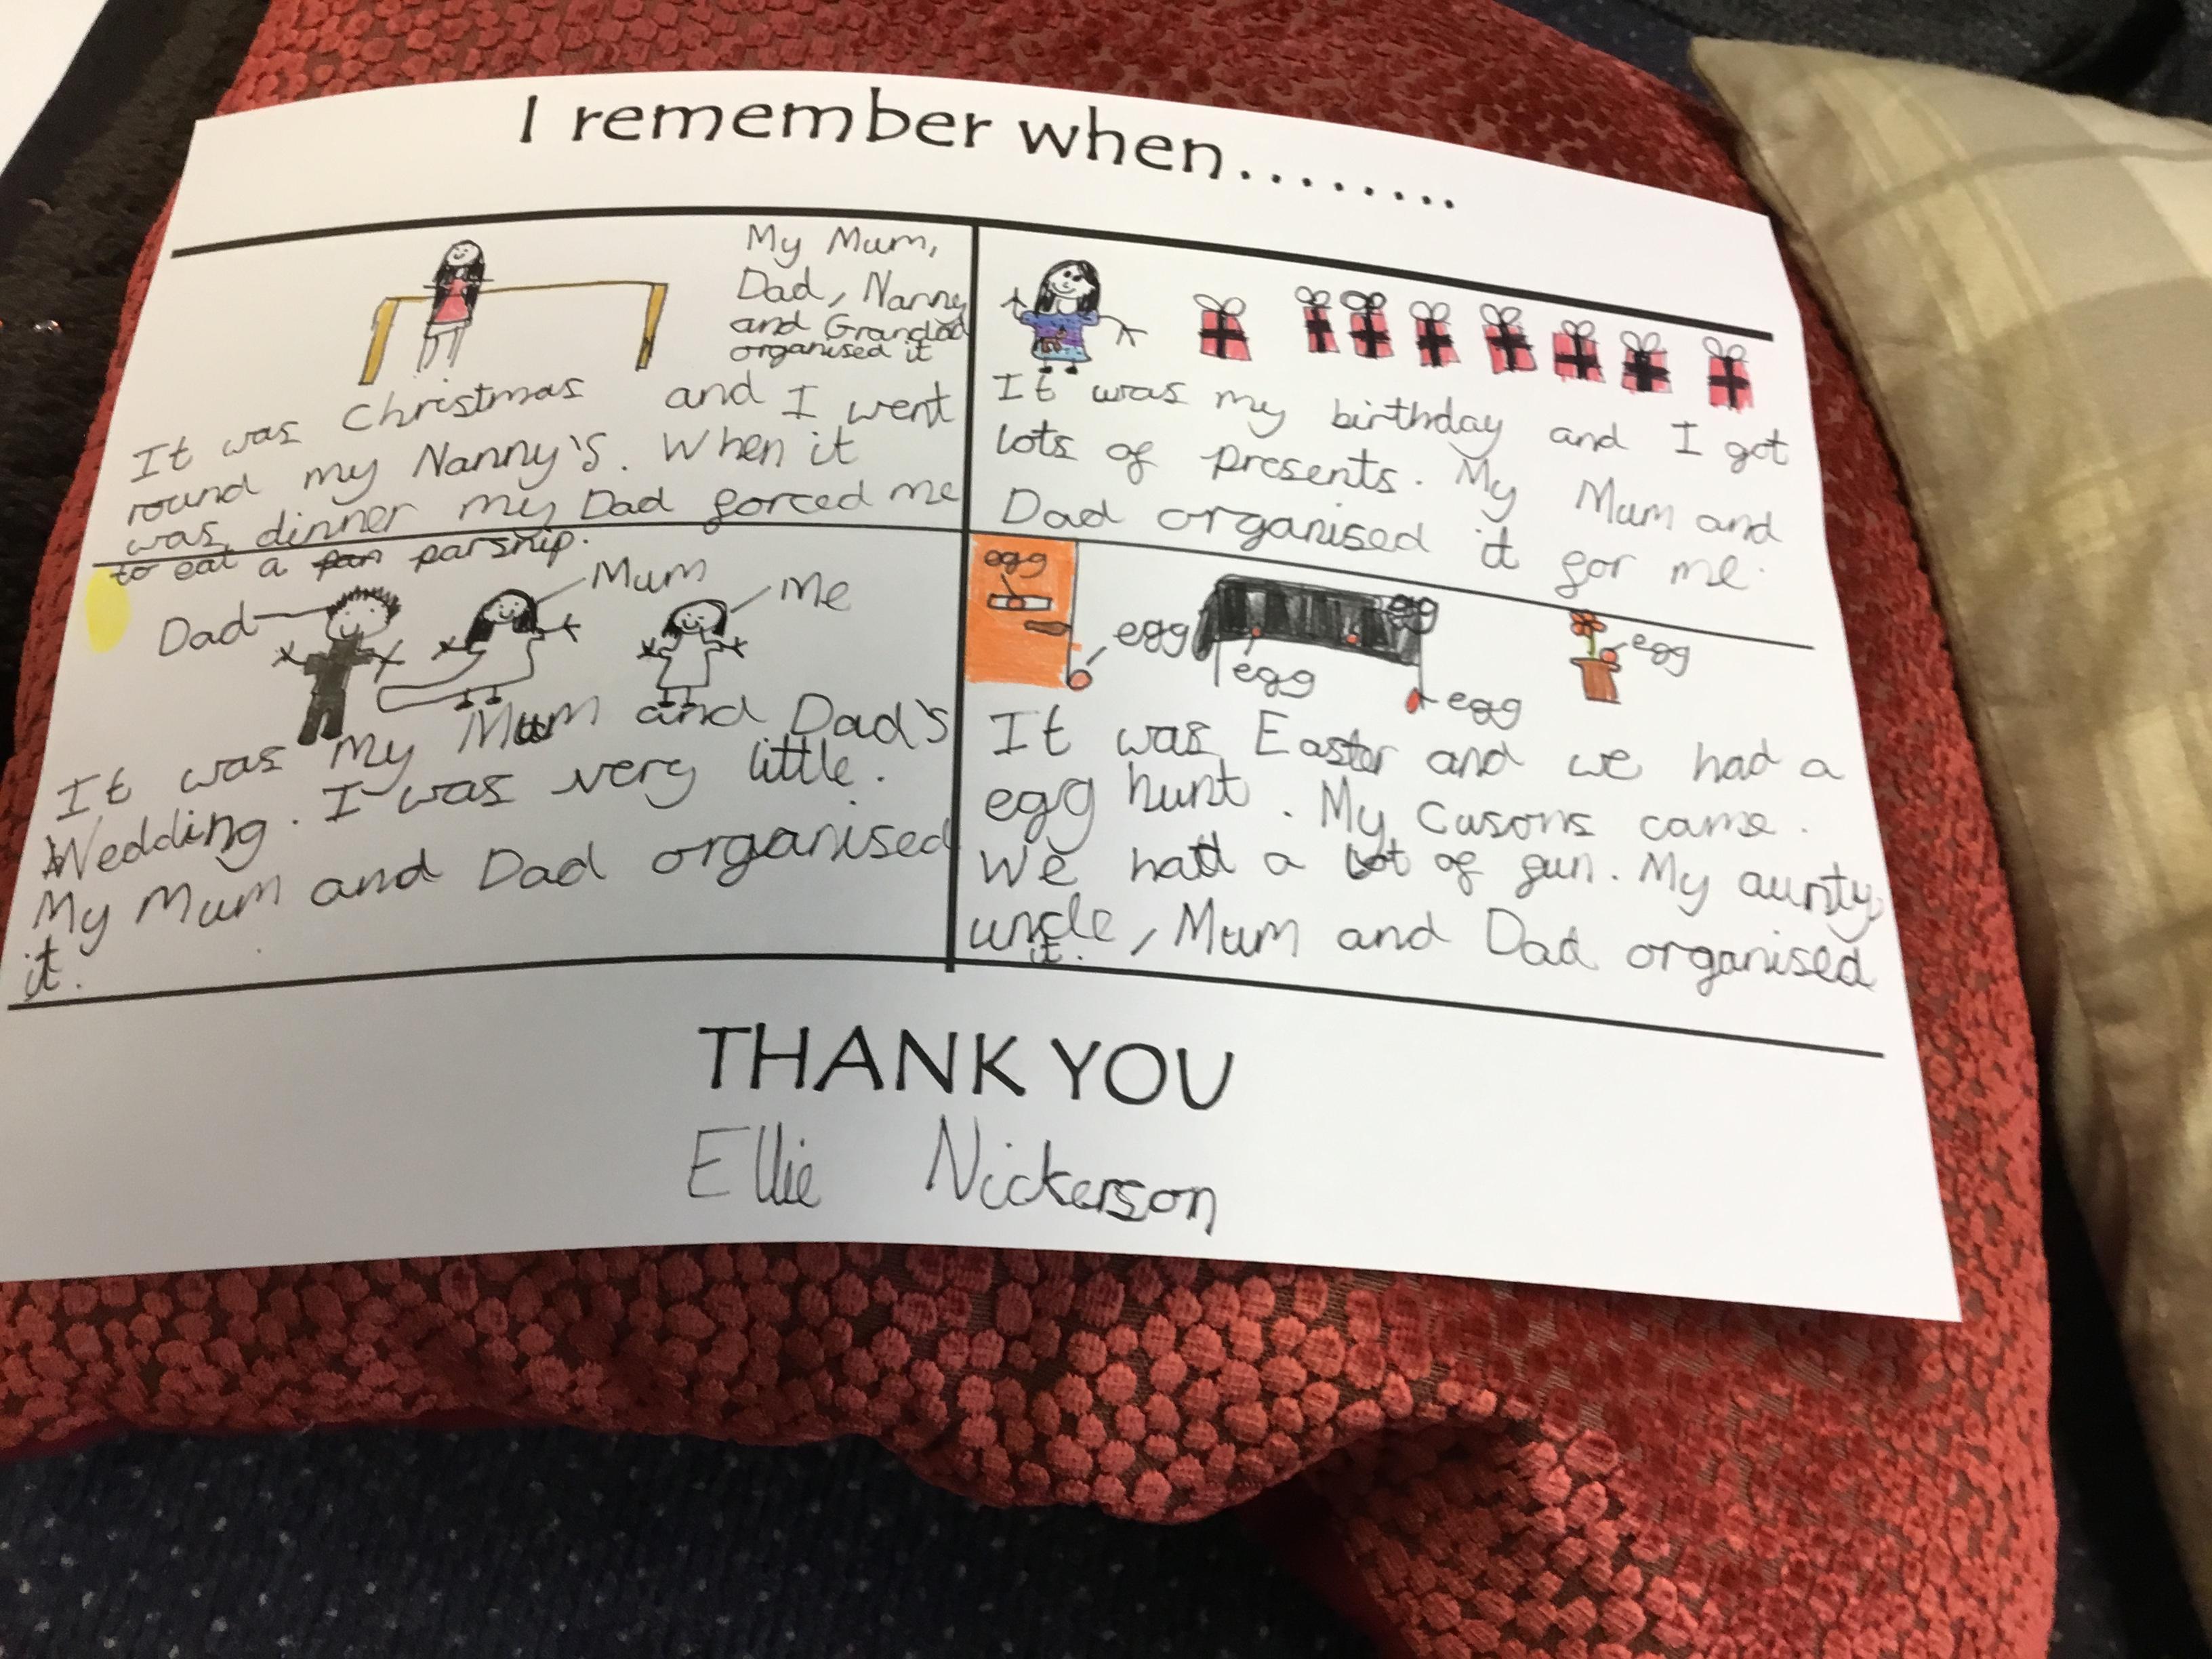 I remember when........
My Mum,
Dad, Nanny
and Grandad
organised it
It was Christmas and I went
round my Nanny's. When it
was dinner my Dad forced me
to eat a parsnip.
It was my birthday and I got
lots of presents. My Mum and
Dad organised it for me.
Dad
Mum
Me
It was my Mum and Dad's
Wedding. I was very little.
My Mum and Dad organised
it.
egg
egg
egg
egg
egg
egg
It was Easter and we had a
egg hunt. My Cusons came.
We had a lot of fun. My aunty,
uncle, Mum and Dad organised
it.
THANK YOU
Ellie Nickerson